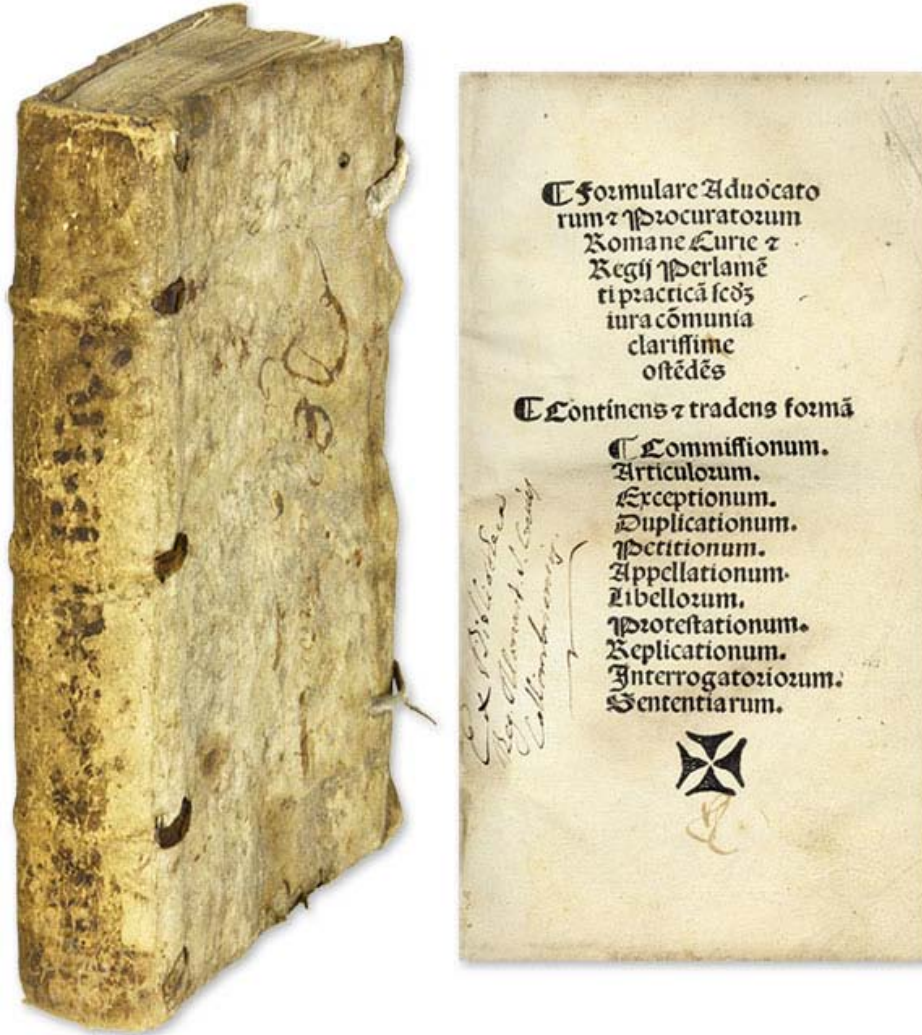 ¶ Formulare Aduocato
rum ⁊ Procuratorum
Romane Curie ⁊
Regij Perlamē
ti practicā scd̛ꝫ
iura cōmunia
clarissime
ostēdēs
¶ Continens ⁊ tradens formā
¶ Commissionum.
Articulorum.
Exceptionum.
Duplicationum.
Petitionum.
Appellationum.
Libellorum.
Protestationum.
Replicationum.
Interrogatoriorum.
Sententiarum.
Ex Bibliotheca
Reg. Monast. S. Crucis
Collimbriensis